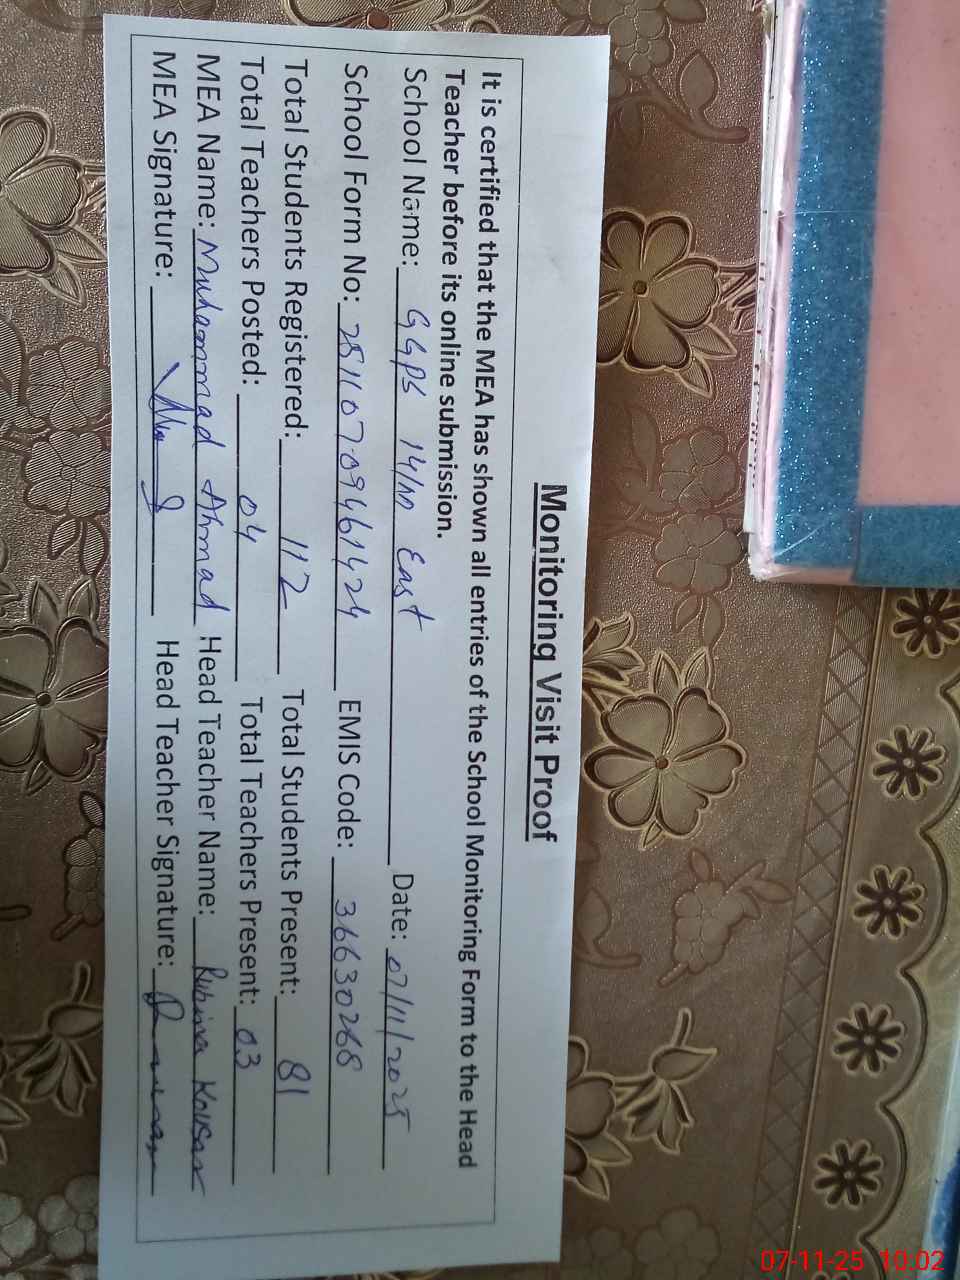 Monitoring Visit Proof
It is certified that the MEA has shown all entries of the School Monitoring Form to the Head
Teacher before its online submission.
School Name: GGPS 14/ East Date: 07/11/2025
School Form No: EMIS Code: 36630268
Total Students Registered: 112 Total Students Present: 81
Total Teachers Posted: 04 Total Teachers Present: 03
MEA Name: Muhammad Ahmad Head Teacher Name: Rubina Kousar
MEA Signature: Head Teacher Signature:
07-11-25 10:02